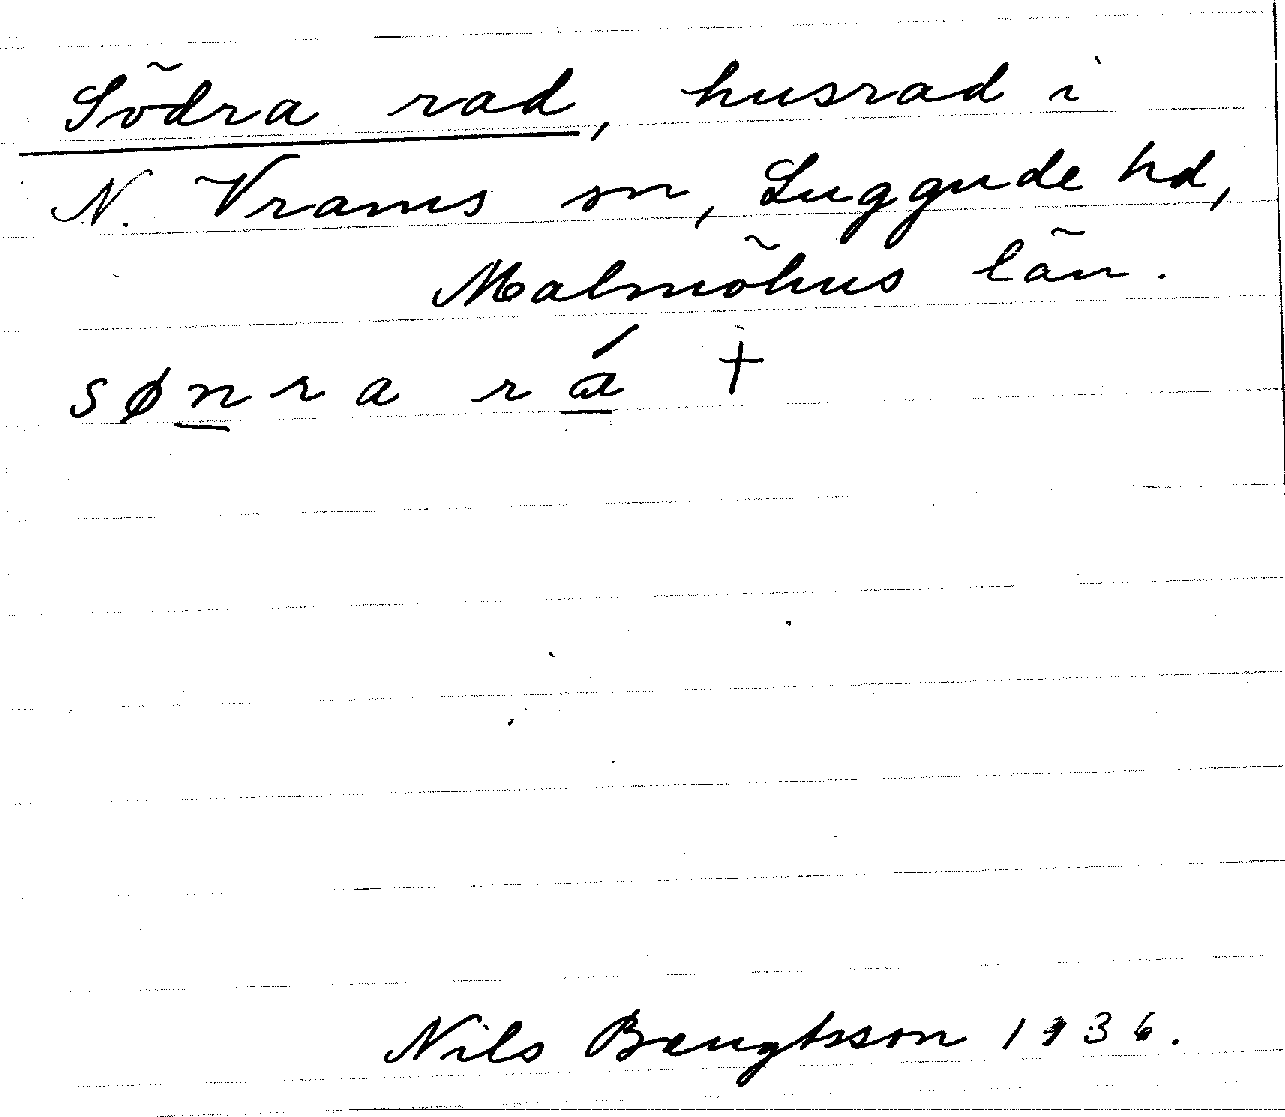 Södra rad, husrad i
N. Vrams sn, Luggude hd,
Malmöhus län.
sønra rá +
Nils Bengtsson 1936.